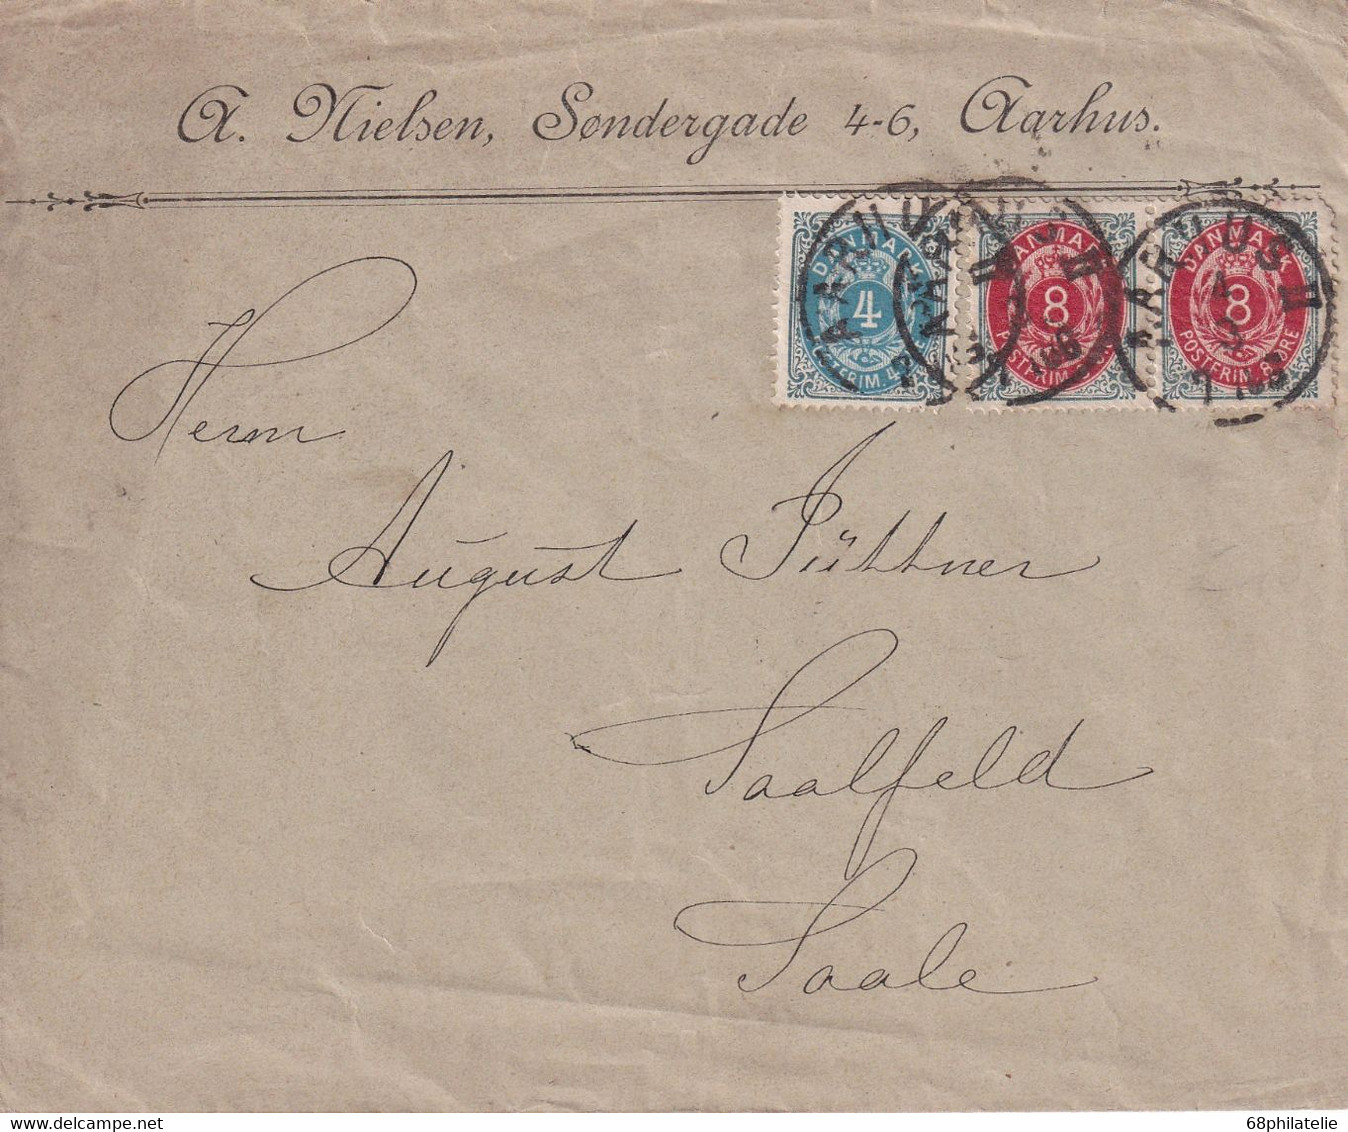 A. Nielsen, Søndergade 4-6, Aarhus.
DANMARK 4 POSTFRIM. 4
DANMARK 8 POSTFRIM. 8
DANMARK 8 POSTFRIM. 8 ØRE
AARHUS
AARHUS II
AARHUS II
Herrn
August Püttner
Saalfeld
Saale
www.delcampe.net
68philatelie